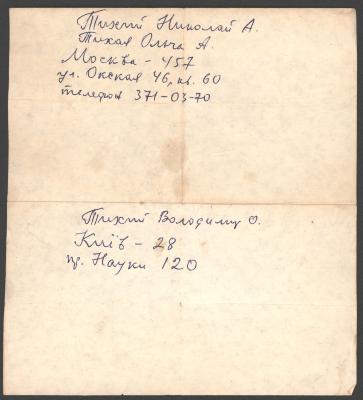 Тихий Николай А.
Тихая Ольга А.
Москва - 457
ул. Окская 46, кв. 60
телефон 371-03-70
Тихий Володимир О.
Київ - 28
пр. Науки 120